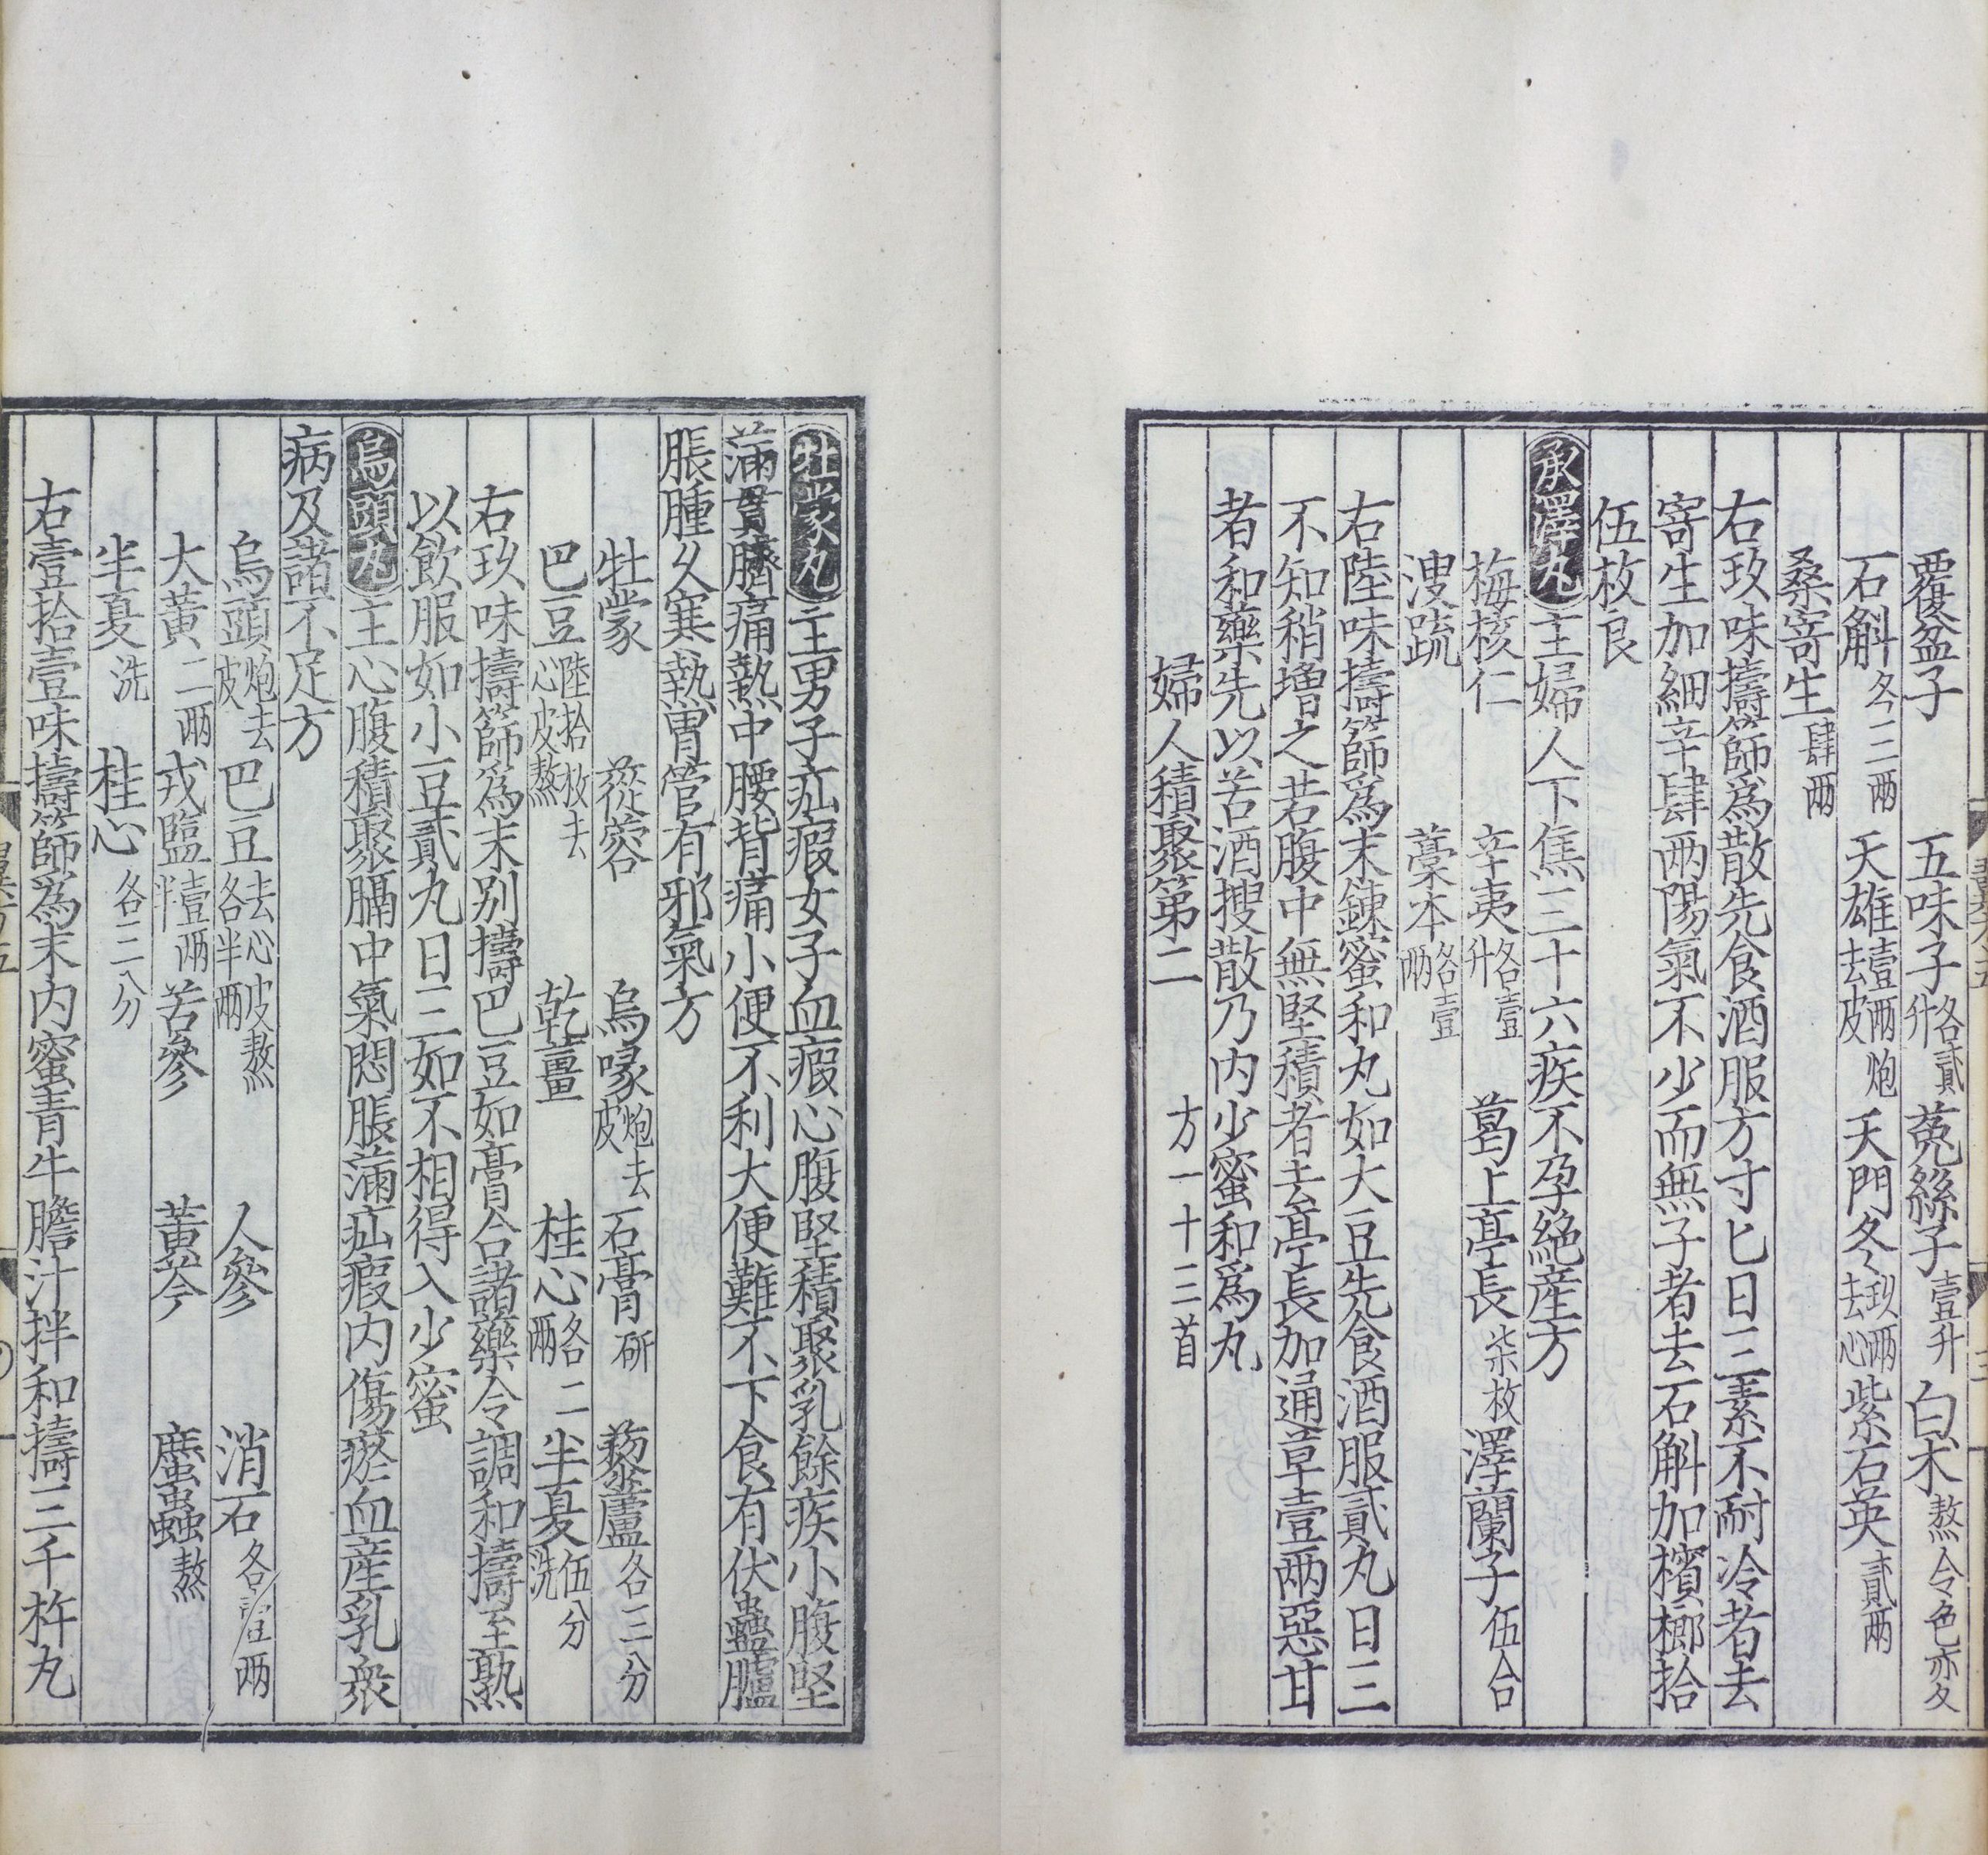 覆盆子 五味子各貳升 菟絲子壹升 白朮熬令色亦久
石斛各三兩 天雄壹兩炮去皮 天門冬玖兩去心 紫石英貳兩
桑寄生肆兩
右玖味擣篩為散先食酒服方寸匕日三素不耐冷者去
寄生加細辛肆兩陽氣不少而無子者去石斛加檳榔拾
伍枚良
承澤丸主婦人下焦三十六疾不孕絕產方
梅核仁 辛夷各壹升 葛上亭長柒枚 澤蘭子伍合
溲疏 藁本各壹兩
右陸味擣篩為末鍊蜜和丸如大豆先食酒服貳丸日三
不知稍增之若腹中無堅積者去亭長加通草壹兩惡甘
者和藥先以苦酒搜散乃內少蜜和為丸
婦人積聚第二 方一十三首
牡蒙丸主男子疝瘕女子血瘕心腹堅積聚乳餘疾小腹堅
滿貫臍痛熱中腰背痛小便不利大便難不下食有伏蠱臚
脹腫久寒熱胃管有邪氣方
牡蒙 蓯蓉 烏喙炮去皮 石膏研 藜蘆各三分
巴豆陸拾枚去心皮熬 乾薑 桂心各二兩 半夏伍分洗
右玖味擣篩為末別擣巴豆如膏合諸藥令調和擣至熟
以飲服如小豆貳丸日三如不相得入少蜜
烏頭丸主心腹積聚膈中氣悶脹滿疝瘕內傷瘀血產乳眾
病及諸不足方
烏頭炮去皮 巴豆去心皮熬各半兩 人參 消石各壹兩
大黃二兩 戎鹽壹兩半 苦參 黃芩 䗪蟲熬
半夏洗 桂心各三分
右壹拾壹味擣篩為末內蜜青牛膽汁拌和擣三千杵丸